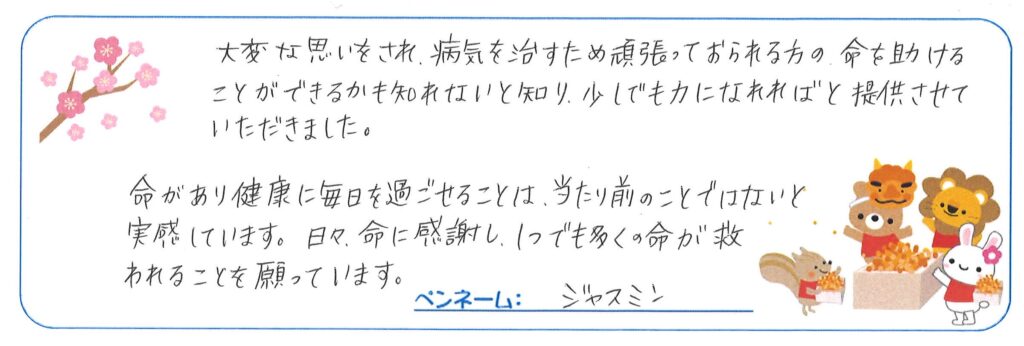 大変な思いをされ、病気を治すため頑張っておられる方の、命を助ける
ことができるかも知れないと知り、少しでも力になれればと提供させて
いただきました。
命があり健康に毎日を過ごせることは、当たり前のことではないと
実感しています。日々、命に感謝し、1つでも多くの命が救
われることを願っています。
ペンネーム: ジャスミン